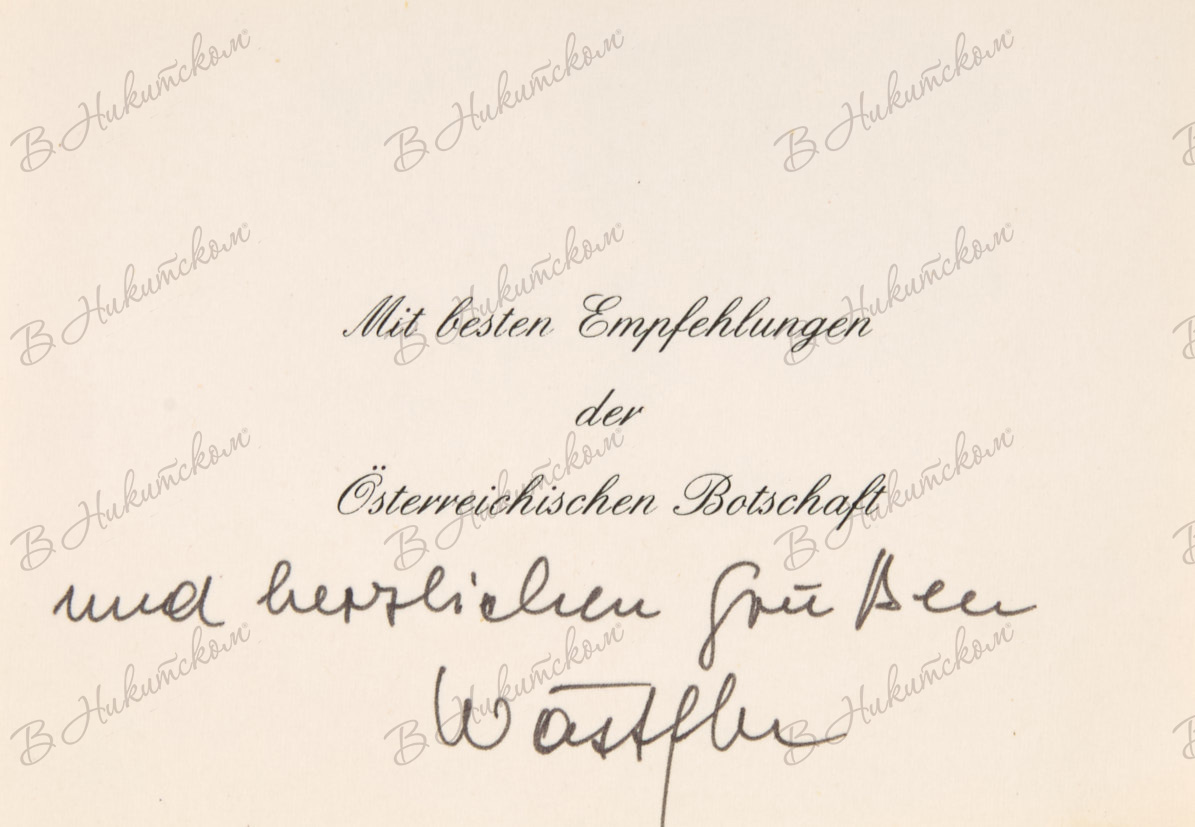 В Никитском® В Никитском® В Никитском®
В Никитском® В Никитском® В Никитском®
Mit besten Empfehlungen
der
Österreichischen Botschaft
В Никитском® В Никитском® В Никитском®
und herzlichen Grüßen
В Никитском® В Никитском® В Никитском®